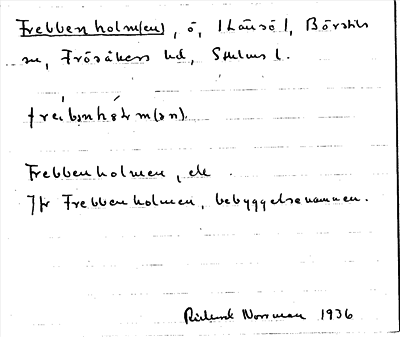 Frebbenholm(en), ö, i Länsö l, Börstils
sn, Frösåkers hd, Sthlms l.
Frebbenholmen, ek
Jfr Frebbenholmen, bebyggelsenamnen.
Rickard Norrman 1936